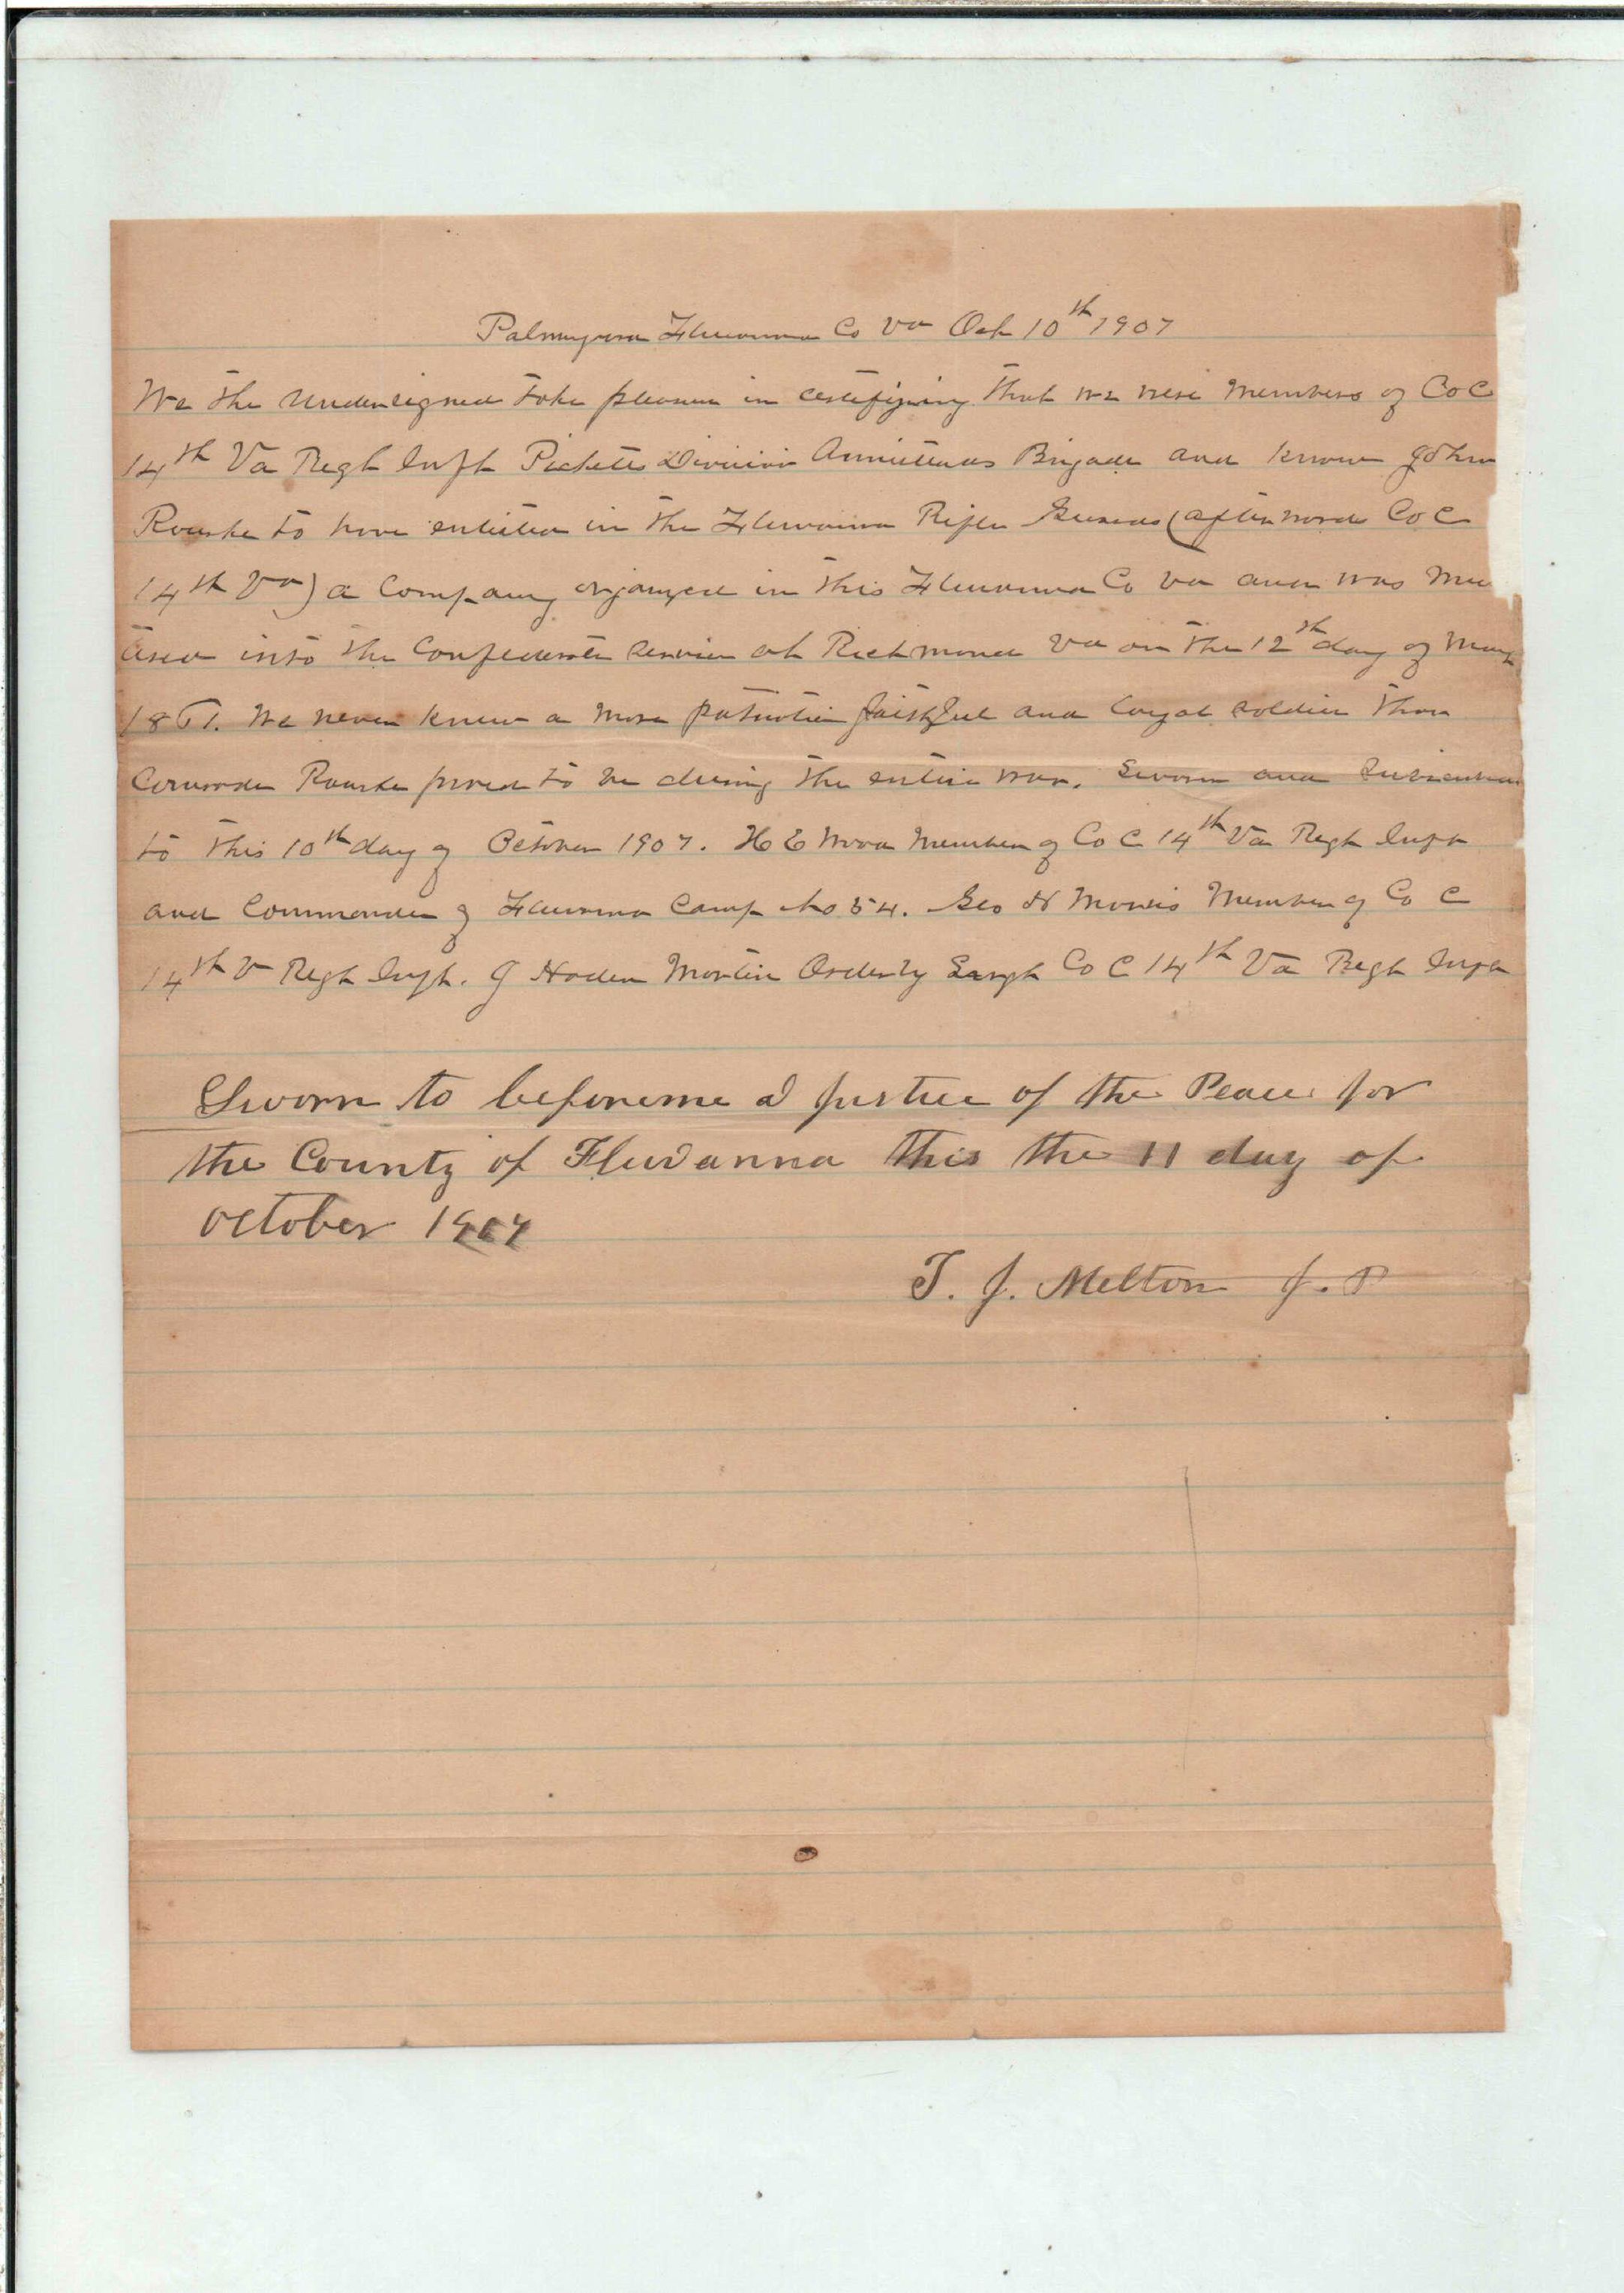 Palmyra Fluvanna Co Va Oct 10th 1907
We the undersigned take pleasure in certifying that we were members of Co C
14th Va Regt Inft Picketts Division Armisteads Brigade and know John
Rourke to have enlisted in the Fluvanna Rifle Guards (afterwards Co C
14th Va) a Company organized in this Fluvanna Co Va and was mus
tered into the Confederate service at Richmond Va on the 12th day of May
1861. We never knew a more patriotic faithful and loyal soldier than
Comrade Rourke proved to be during the entire war. Sworn and subscribed
to this 10th day of October 1907. H E Wood Member of Co C 14th Va Regt Inft
and Commander of Fluvanna Camp No 54. Geo H Morris Member of Co C
14th V Regt Inft. J Haden Martin Orderly Sargt Co C 14th Va Regt Inft
Sworn to before me a Justice of the Peace for
the County of Fluvanna this the 11 day of
october 1907
T. J. Melton J. P